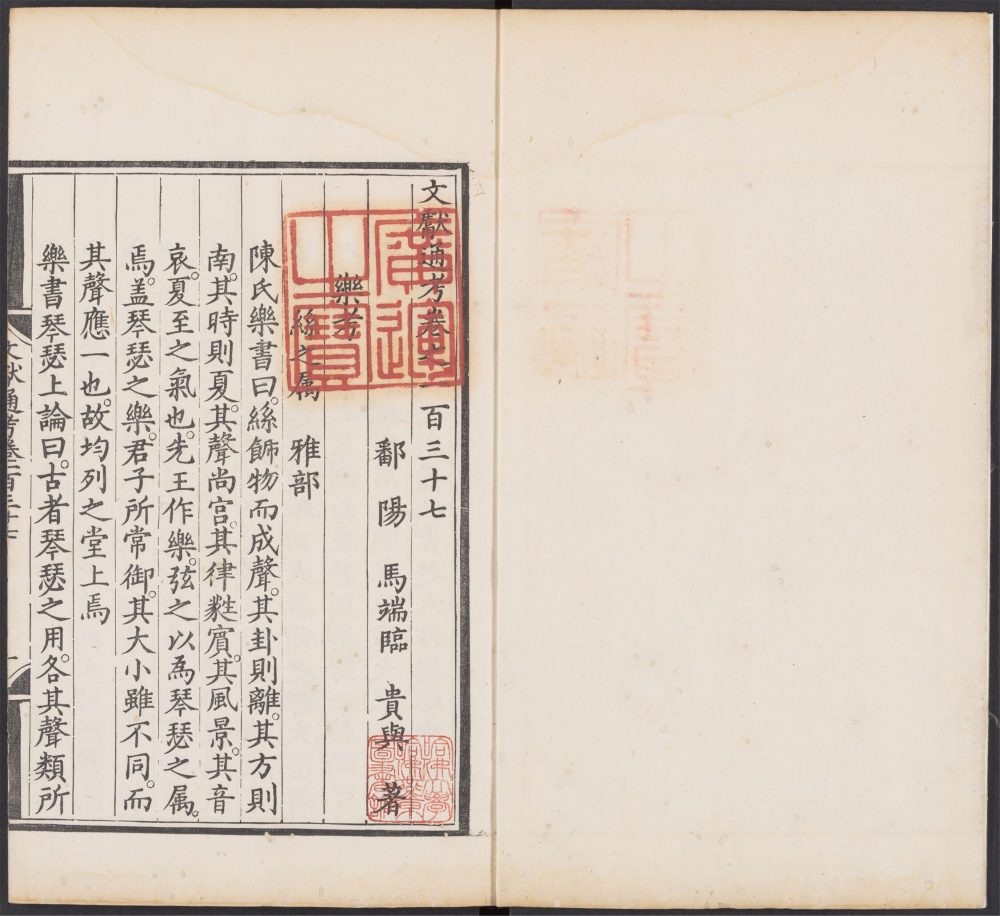 文獻通考卷之一百三十七
鄱陽 馬端臨 貴與 著
樂考
絲之属 雅部
陳氏樂書曰。絲飾物而成聲。其卦則離。其方則
南。其時則夏。其聲尚宫。其律蕤賔。其風景。其音
哀。夏至之氣也。先王作樂。弦之以為琴瑟之属
焉。盖琴瑟之樂。君子所常御。其大小雖不同。而
其聲應一也。故均列之堂上焉
樂書琴瑟上論曰。古者琴瑟之用。各其聲類所
文獻通考卷一百三十七
廣運之寶